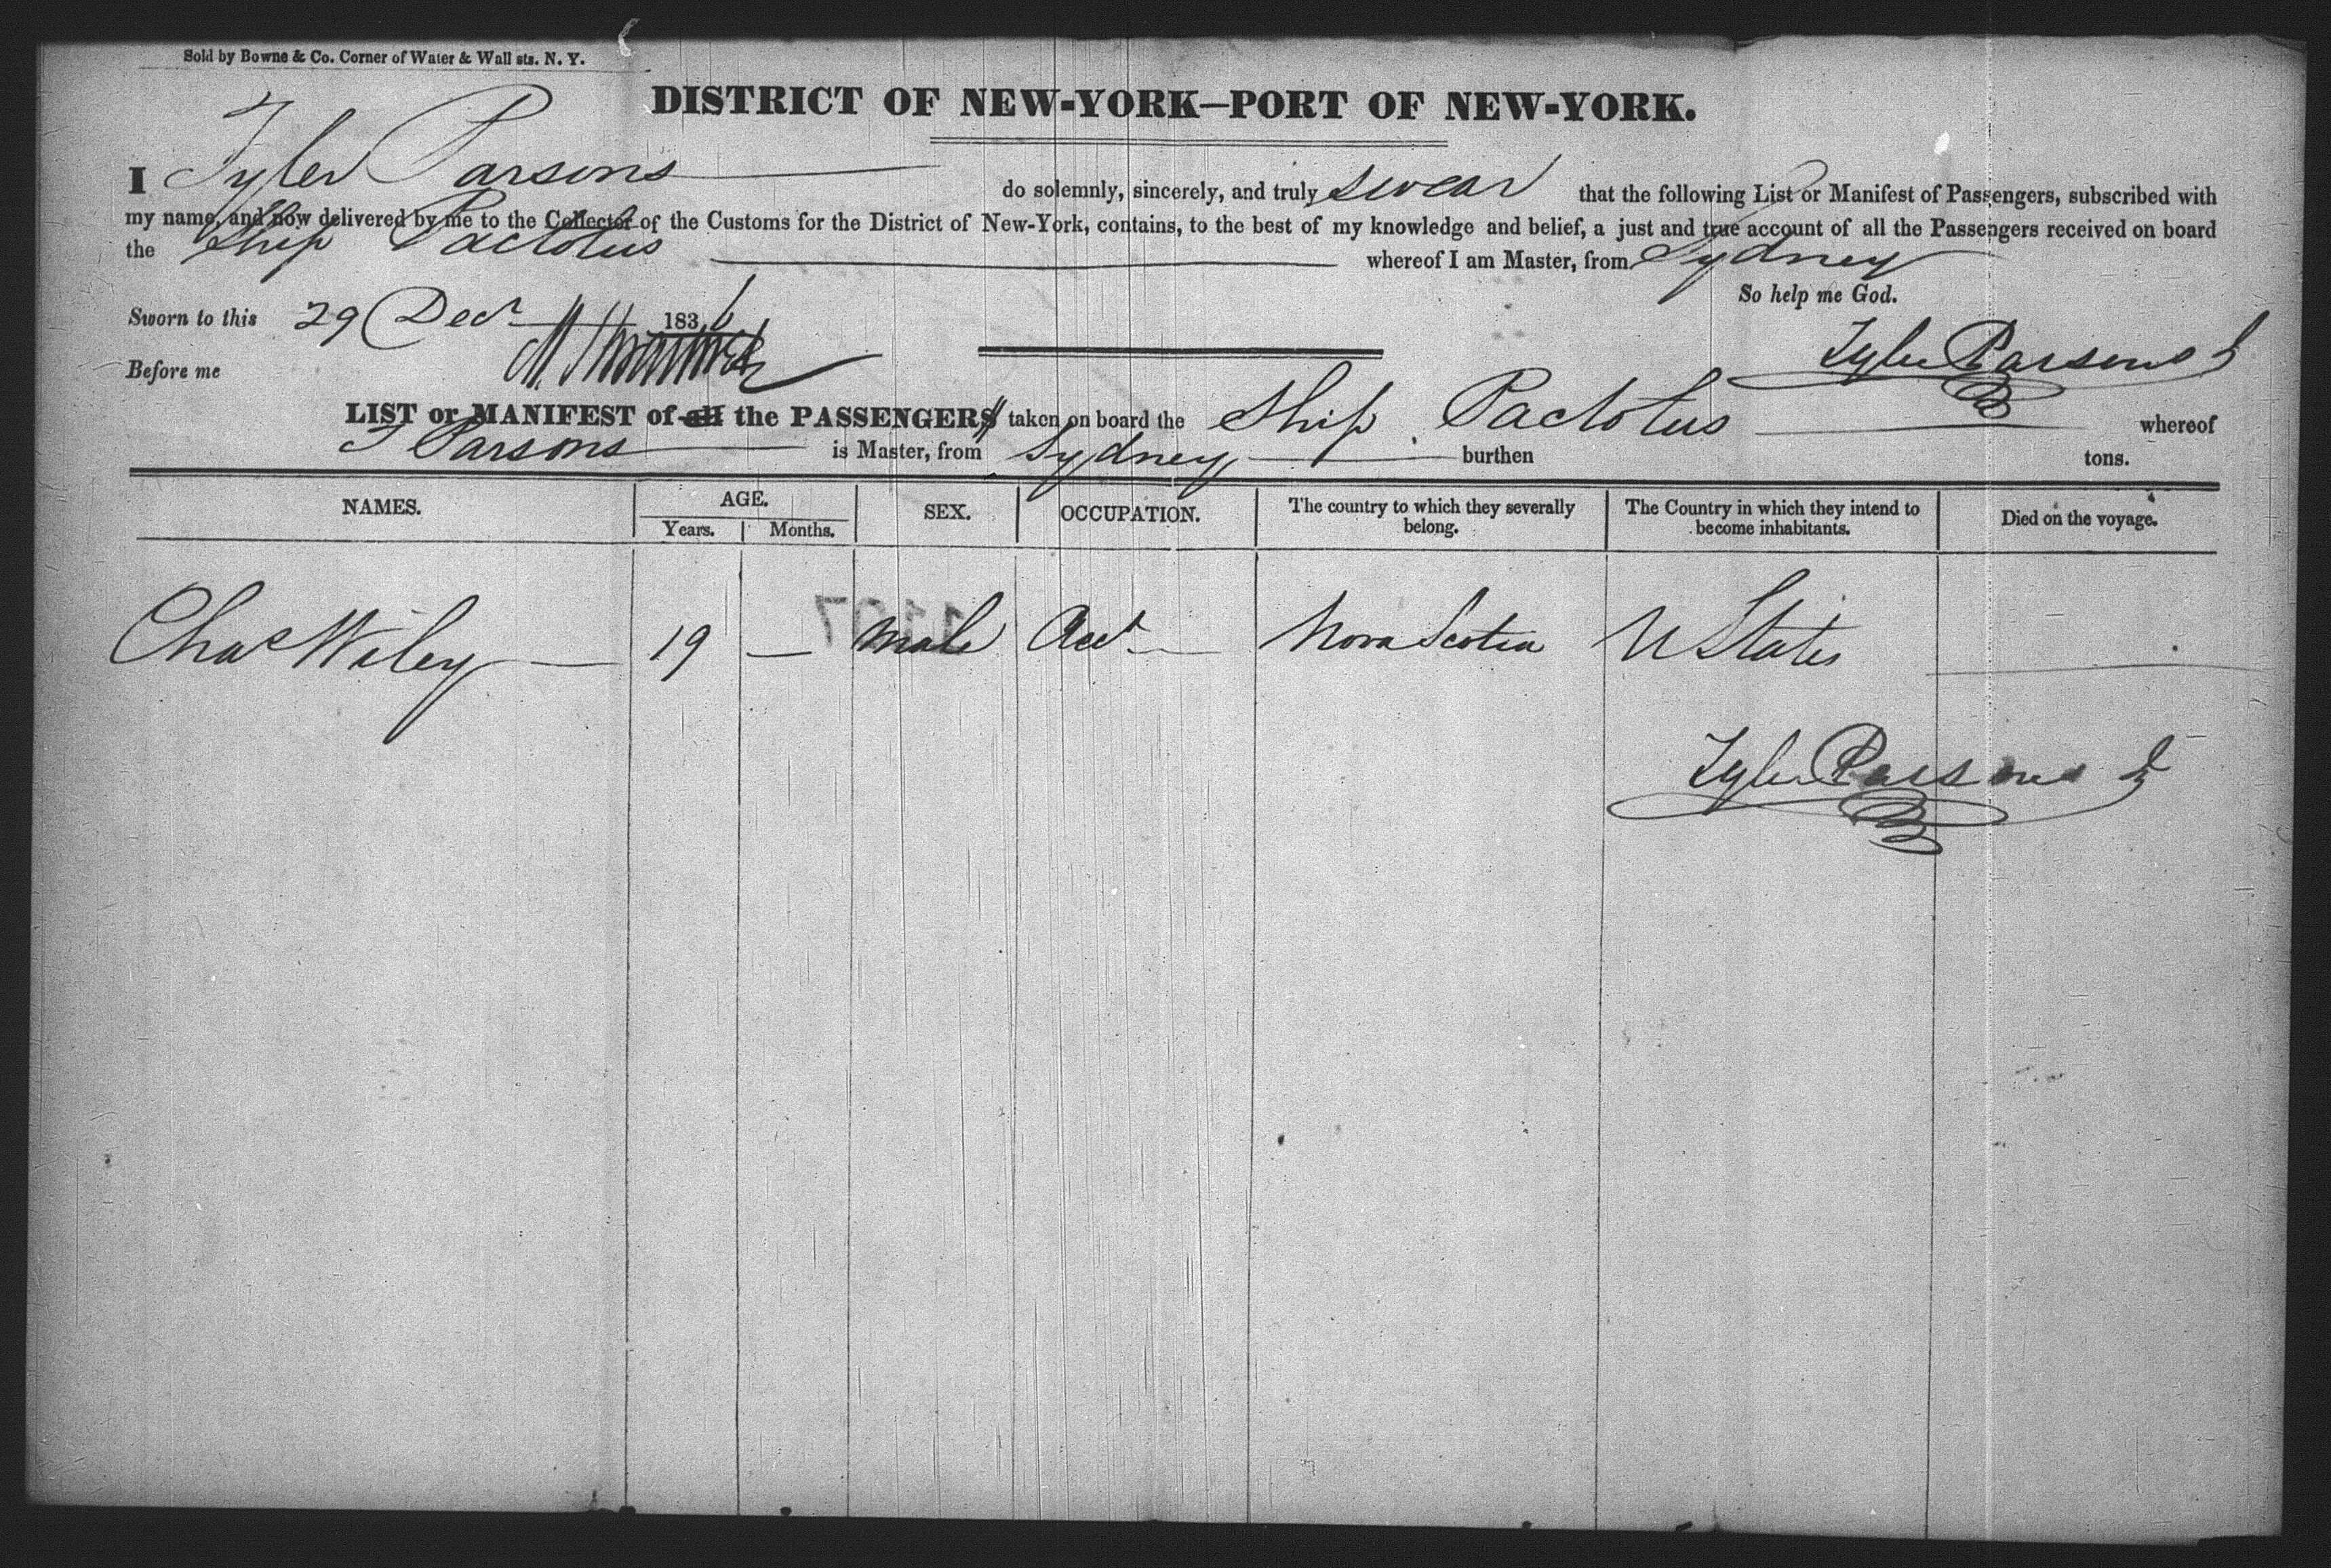 Sold by Bowne & Co. Corner of Water & Wall sts. N. Y.
DISTRICT OF NEW-YORK—PORT OF NEW-YORK.
I Tyler Parsons do solemnly, sincerely, and truly swear that the following List or Manifest of Passengers, subscribed with
my name, and now delivered by me to the Collector of the Customs for the District of New-York, contains, to the best of my knowledge and belief, a just and true account of all the Passengers received on board
the Ship Pactolus whereof I am Master, from Sydney
So help me God.
Sworn to this 29 Decr 1836
Tyler Parsons Jr
Before me
LIST or MANIFEST of all the PASSENGERS taken on board the Ship Pactolus whereof
T Parsons is Master, from Sydney burthen tons.
NAMES. AGE. Years. Months. SEX. OCCUPATION. The country to which they severally belong. The Country in which they intend to become inhabitants. Died on the voyage.
Chas Wiley 19 — male Acct Nova Scotia U States
Tyler Parsons Jr